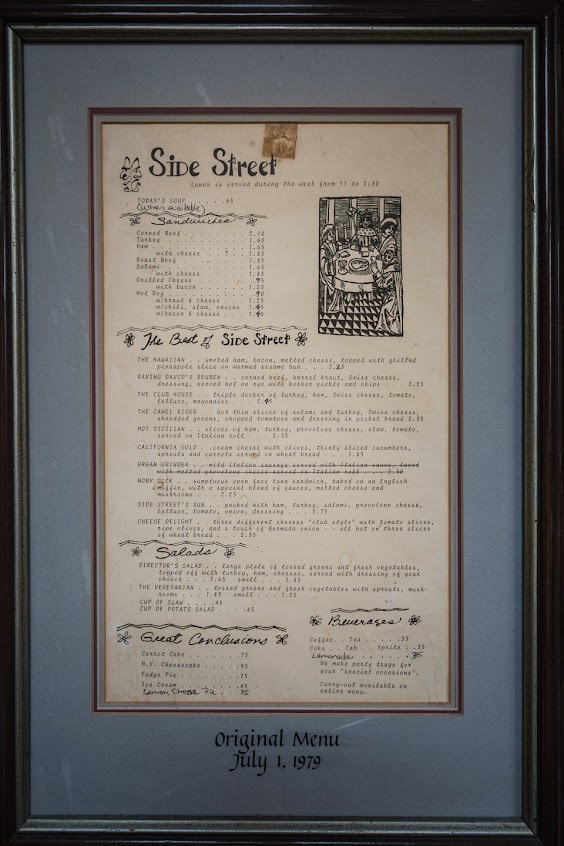 Side Street
Lunch is served during the week from 11 to 1:30
TODAY'S SOUP . . . . . . .65
(When available)
Sandwiches
Corned Beef . . . . . . . . 2.10
Turkey . . . . . . . . . 1.60
Ham . . . . . . . . . . 1.65
with cheese . . . . . 1.85
Roast Beef . . . . . . . 1.85
Salami . . . . . . . . . 1.65
with cheese . . . . . 1.85
Grilled Cheese . . . . . .95
with bacon . . . . . . 1.25
Hot Dog . . . . . . . . .90
w/kraut & cheese . . . . 1.25
w/chili, slaw, onions 1.45
w/bacon & cheese . . . . 1.45
The Best of Side Street
THE HAWAIIAN . . smoked ham, bacon, melted cheese, topped with grilled
pineapple slice on warmed sesame bun . . .
RAVING DAVID'S REUBEN . . corned beef, barrel kraut, Swiss cheese,
dressing, served hot on rye with kosher pickle and chips . . . 2.25
THE CLUB HOUSE . . triple decker of turkey, ham, Swiss cheese, tomato,
lettuce, mayonnaise . . .
THE CAMEL RIDER . . hot thin slices of salami and turkey, Swiss cheese,
shredded greens, chopped tomatoes and dressing in pocket bread 2.35
HOT SICILIAN . . slices of ham, turkey, provolone cheese, slaw, tomato,
served on Italian roll . . . 2.35
CALIFORNIA GOLD . . cream cheese with olives, thinly sliced cucumbers,
sprouts and carrots served on wheat bread . . . 1.85
ORGAN GRINDER . . mild Italian sausage served with Italian sauce,
with melted provolone cheese and a Italian roll . . .
MOBY DICK . . sumptuous open face tuna sandwich, baked on an English
muffin, with a special blend of sauces, melted cheese and
mushrooms . . . 2.25
SIDE STREET'S SUB . . packed with ham, turkey, salami, provolone cheese,
lettuce, tomato, onion, dressing . . . 2.75
CHEESE DELIGHT . . three different cheeses "club style" with tomato slices,
ripe olives, and a touch of Bermuda onion -- all hot on three slices
of wheat bread . . . 2.35
Salads
DIRECTOR'S SALAD . . large plate of tossed greens and fresh vegetables,
topped off with turkey, ham, cheeses, served with dressing of your
choice . . . 2.65 small . . . 1.85
THE VEGETARIAN . . tossed greens and fresh vegetables with sprouts, mush-
rooms . . . 1.85 small . . . 1.25
CUP OF SLAW . . . .45
CUP OF POTATO SALAD . . .45
Great Conclusions
Carrot Cake . . . . . . .75
N.Y. Cheesecake . . . . . .95
Fudge Pie . . . . . . . .75
Ice Cream . . . . . . . .45
Lemon Chess Pie . . .75
Beverages
Coffee . . Tea . . . . . .35
Coke . . Tab . . Sprite . . .35
Lemonade
We make party trays for
your "special occasions".
Carry-out available on
entire menu.
Original Menu
July 1, 1979